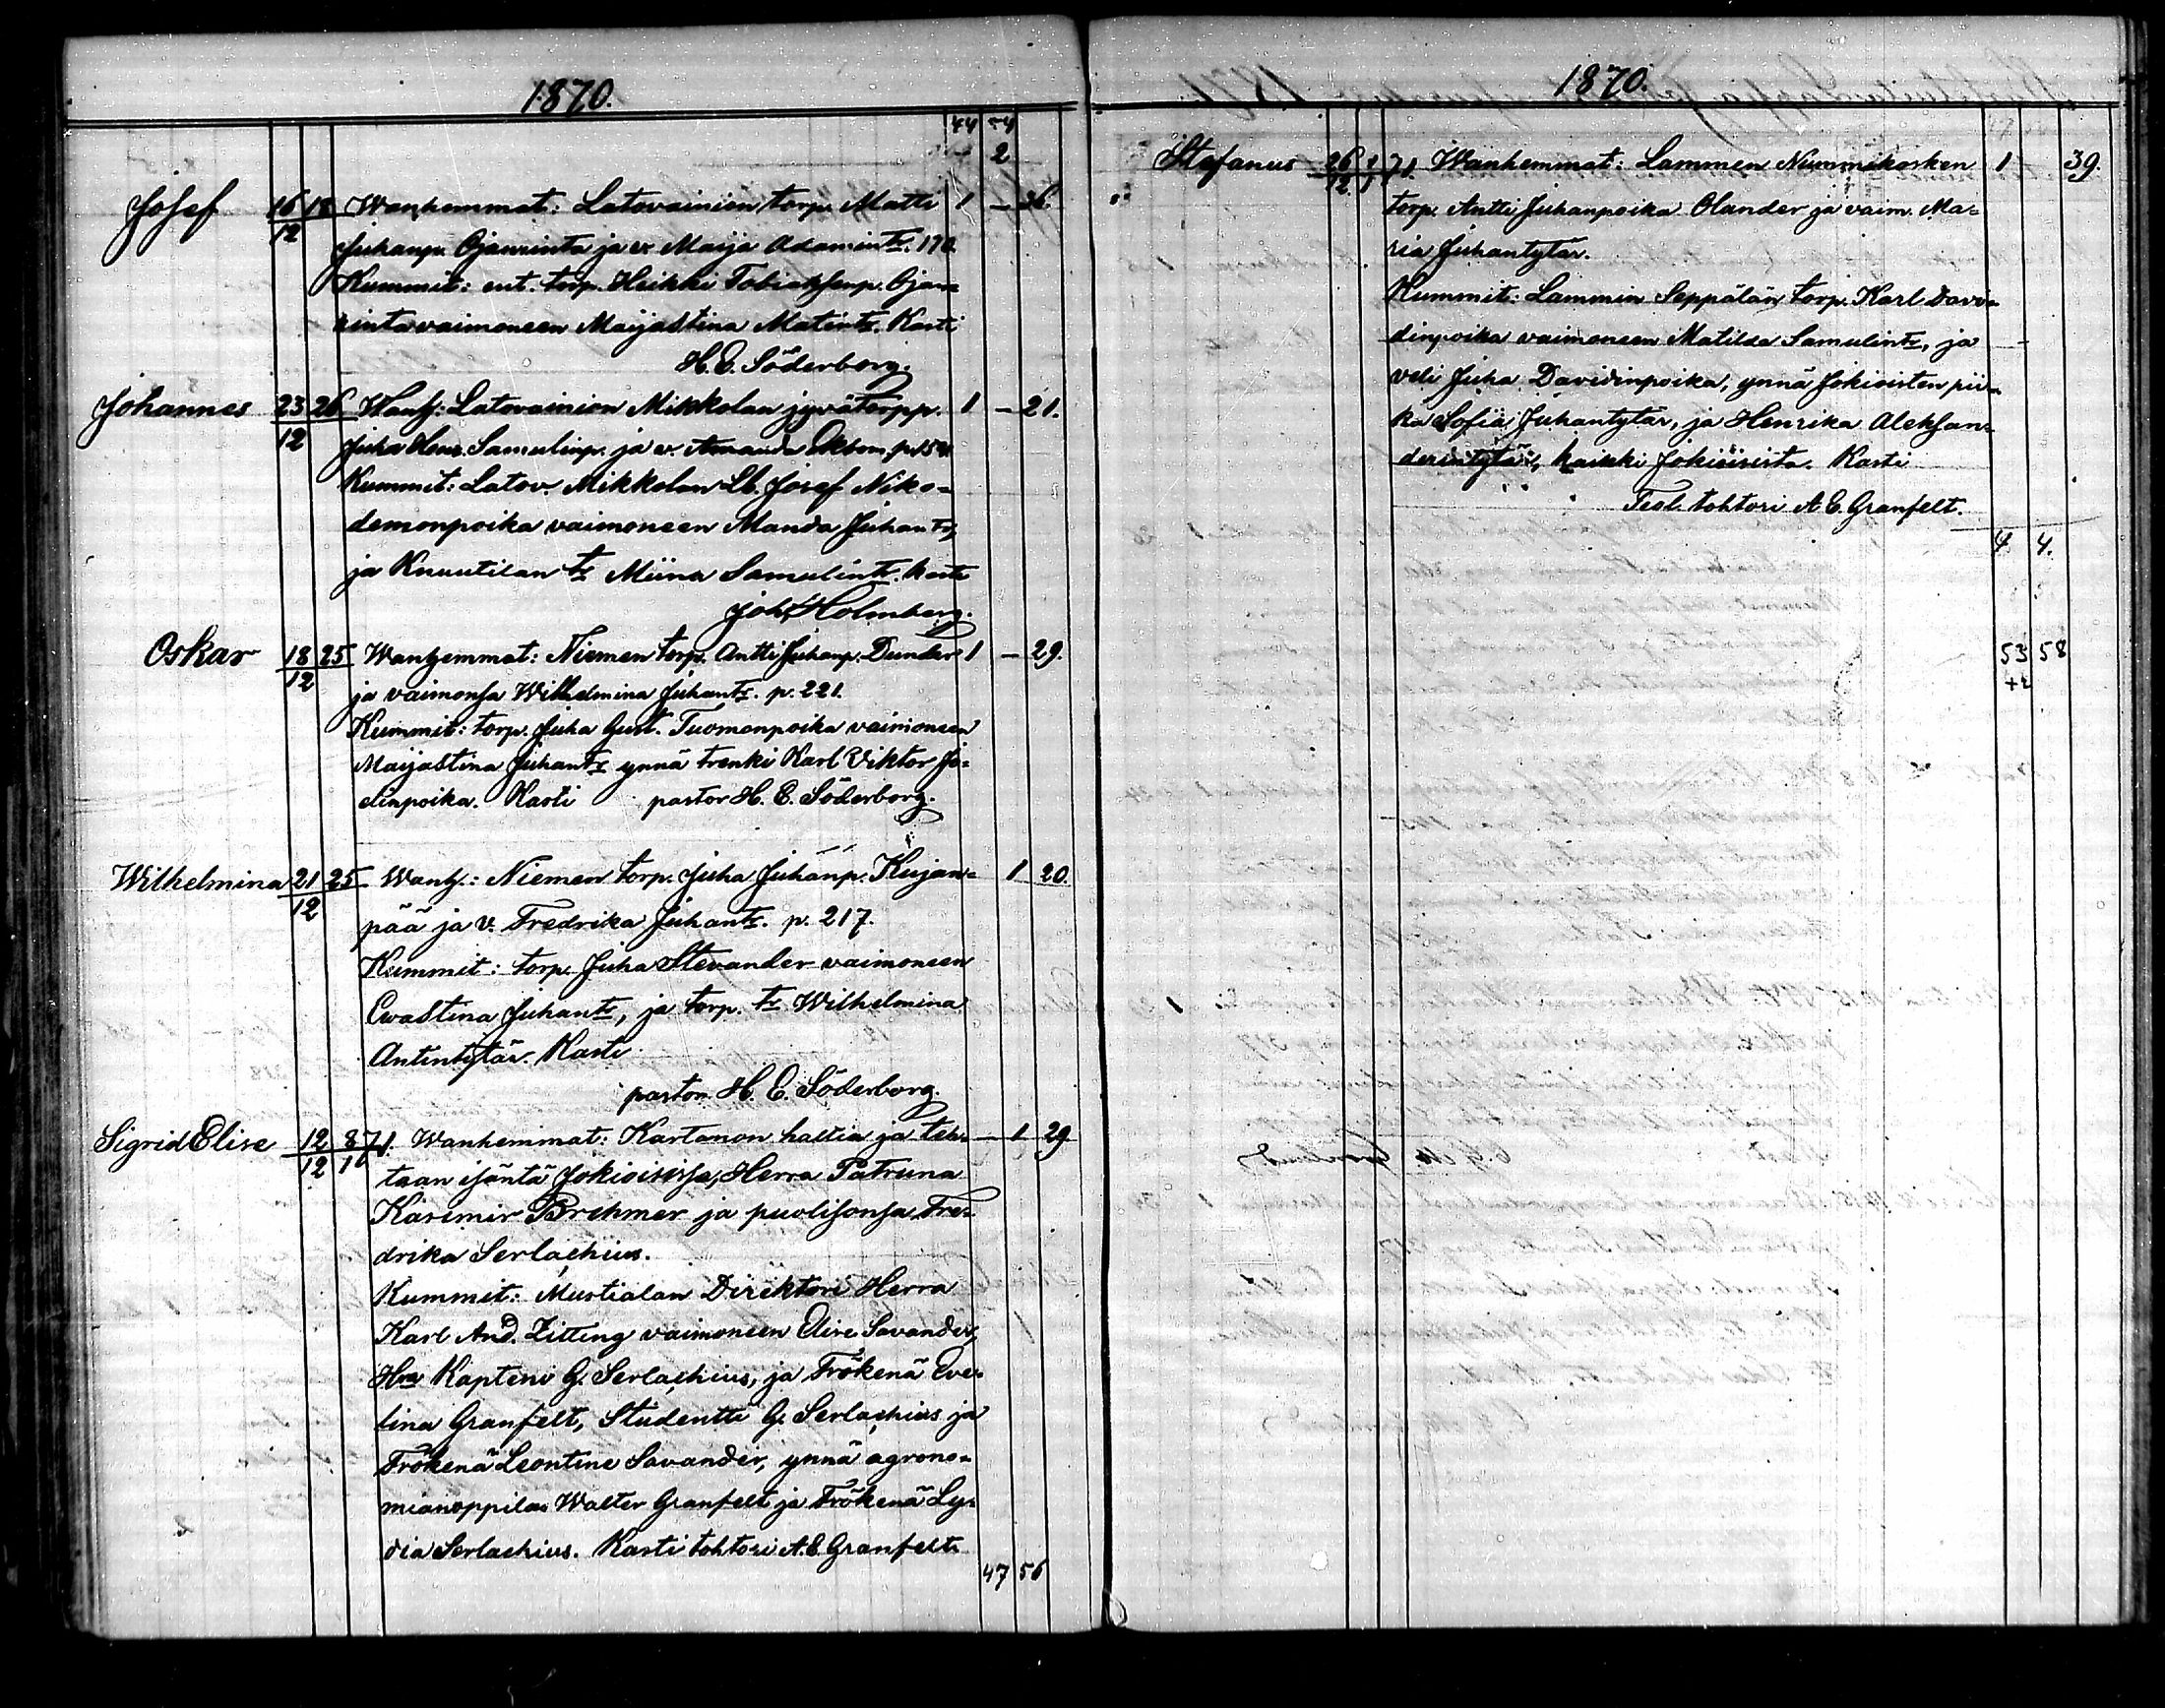 1870.
44
2
Josef 16/12 18 Wanhemmat: Latovainion torp. Matti 1 – 26
Juhanp. Ojanrinta ja v. Maija Adamintr. 170.
Kummit: ent. torp. Heikki Tobiaksenp. Ojan=
rinta vaimoneen Maijastina Matintr. Kasti
H. E. Söderborg.
Johannes 23/12 26 Wanh: Latovainion Mikkolan jyvätorpp. 1 – 21.
Juha Samulinp. ja v. Amanda
Kummit: Latov. Mikkolan Lt. Josef Niko=
demonpoika vaimoneen Manda Juhantr,
ja Knuutilan tr Miina Samulintr. Kasti
Joh. Holmberg.
Oskar 18/12 25 Wanhemmat: Niemen torp. Antti Juhanp. Dunder 1 – 29.
ja vaimonsa Wilhelmina Juhantr. p. 221.
Kummit: torp. Juha Gust. Tuomonpoika vaimoneen
Maijastina Juhantr ynnä trenki Karl Viktor Jo=
elinpoika. Kasti pastor H. E. Söderborg.
Wilhelmina 21/12 25 Wanh.: Niemen torp. Juha Juhanp. Kujan= 1 20.
pää ja v. Fredrika Juhantr. p. 217.
Kummit: torp. Juha Stevander vaimoneen
Evastina Juhantr, ja torp. tr Wilhelmina
Antintytär. Kasti
pastor H. E. Söderborg.
Sigrid Elise 12/12 8/1 71. Wanhemmat: Kartanon haltia ja teh= – 1 29
taan isäntä Jokioisissa, Herra Patruna
Kasimir Brehmer ja puolisonsa Fre=
drika Serlachius.
Kummit: Mustialan Direktöri Herra
Karl And. Zitting vaimoneen Elise Savander,
Hra Kapteni G. Serlachius, ja Frökenä Eve=
lina Granfelt, Studentti G. Serlachius ja
Frökenä Leontine Savander, ynnä agrono=
mianoppilas Walter Granfelt ja Frökenä Ly=
dia Serlachius. Kasti tohtori A. E. Granfelt.
47 56
1870.
Stefanus 26/12 71. Wanhemmat: Lammen Nummikosken 1 – 39.
torp. Antti Juhanpoika Olander ja vaim. Ma=
ria Juhantytär.
Kummit: Lammin Seppälän torp. Karl Davi=
dinpoika vaimoneen Matilda Samulintr, ja
veli Juha Davidinpoika, ynnä Jokioisten pii=
ka Sofia Juhantytär, ja Henrika Aleksan=
derintytär, kaikki Jokioisista. Kasti
Teol. tohtori A. E. Granfelt.
4 4.
53 58